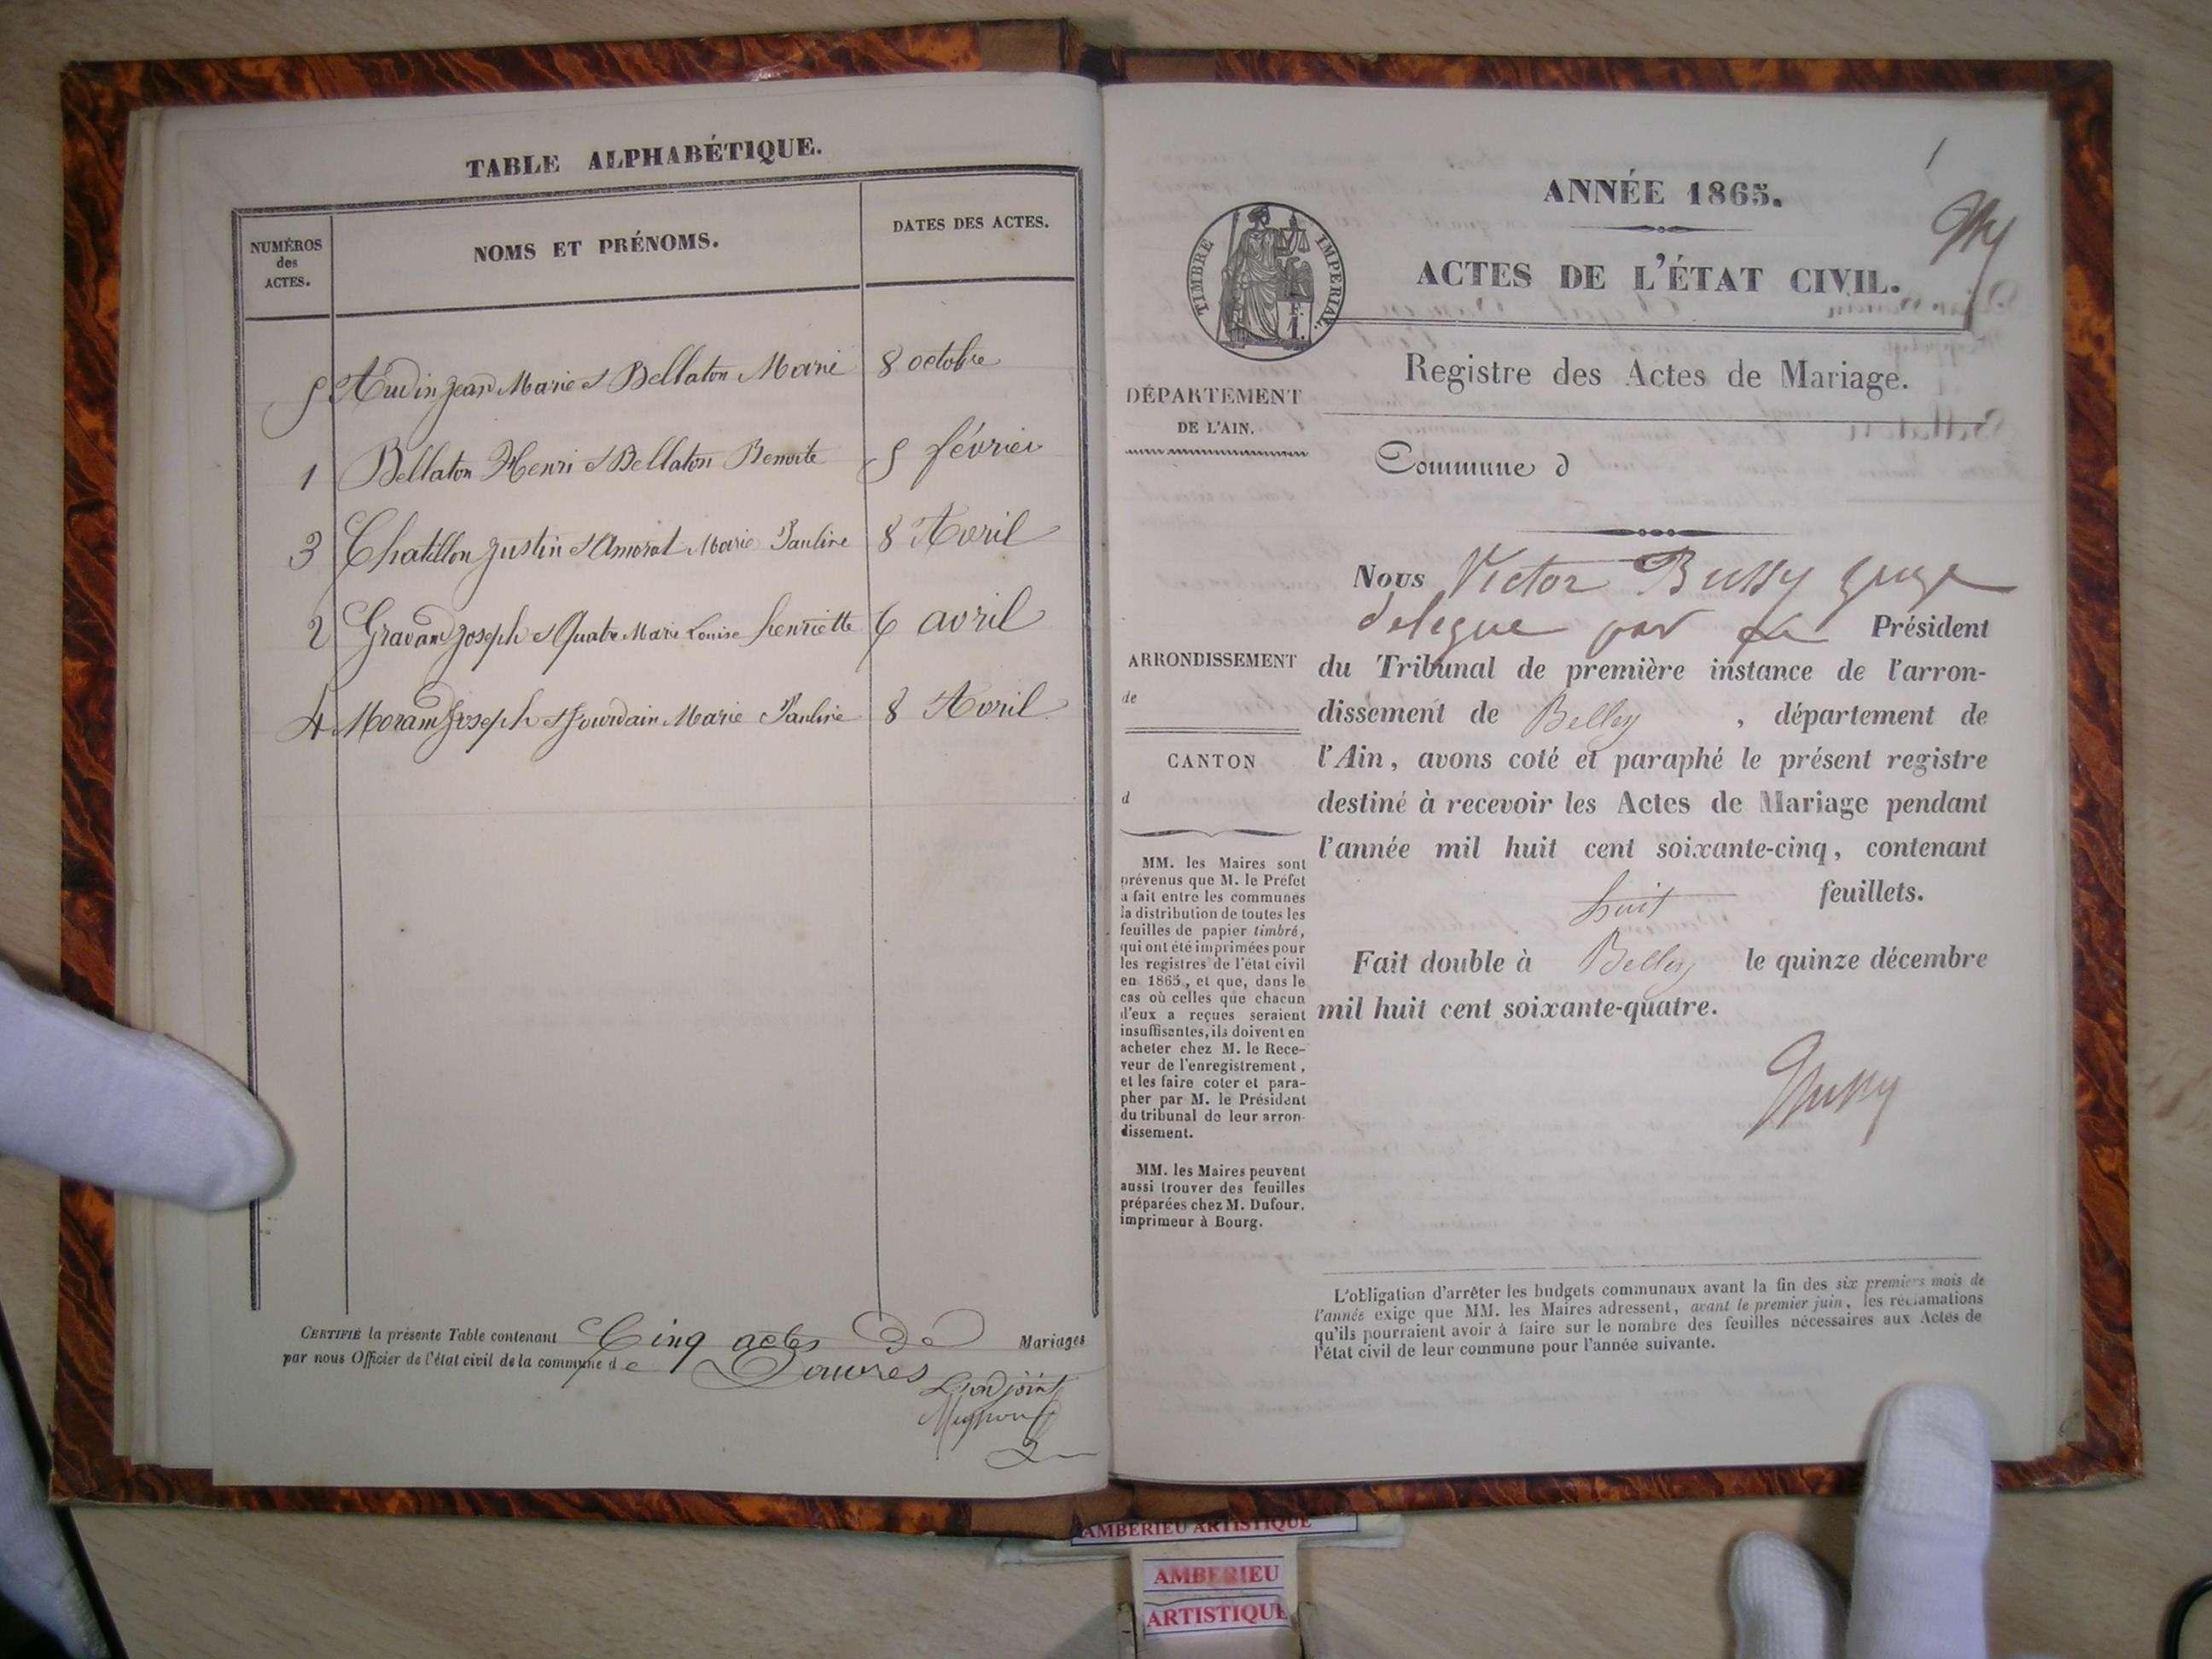 TABLE ALPHABÉTIQUE.
NUMÉROS
des
ACTES.
NOMS ET PRÉNOMS.
DATES DES ACTES.
5 Audin Jean Marie et Bellaton Marie 8 octobre
1 Bellaton Henri et Bellaton Benoite 5 février
3 Chatillon Justin et Amorat Marie Pauline 8 Avril
2 Gravand Joseph et Quatre Marie Louise henriette 6 avril
4 Morand Joseph et Jourdain Marie Pauline 8 Avril
CERTIFIÉ la présente Table contenant Cinq actes De Mariages
par nous Officier de l'état civil de la commune de Douvres
L'adjoint
1
ANNÉE 1865.
ACTES DE L'ÉTAT CIVIL.
TIMBRE IMPERIAL
Registre des Actes de Mariage.
DÉPARTEMENT
DE L'AIN.
Commune d
ARRONDISSEMENT
de
CANTON
d
MM. les Maires sont
prévenus que M. le Préfet
a fait entre les communes
la distribution de toutes les
feuilles de papier timbré,
qui ont été imprimées pour
les registres de l'état civil
en 1865, et que, dans le
cas où celles que chacun
d'eux a reçues seraient
insuffisantes, ils doivent en
acheter chez M. le Rece-
veur de l'enregistrement,
et les faire coter et para-
pher par M. le Président
du tribunal de leur arron-
dissement.
MM. les Maires peuvent
aussi trouver des feuilles
préparées chez M. Dufour,
imprimeur à Bourg.
Nous Victor Bussy juge
delegue par le Président
du Tribunal de première instance de l'arron-
dissement de Belley, département de
l'Ain, avons coté et paraphé le présent registre
destiné à recevoir les Actes de Mariage pendant
l'année mil huit cent soixante-cinq, contenant
huit feuillets.
Fait double à Belley le quinze décembre
mil huit cent soixante-quatre.
Bussy
L'obligation d'arrêter les budgets communaux avant la fin des six premiers mois de
l'année exige que MM. les Maires adressent, avant le premier juin, les réclamations
qu'ils pourraient avoir à faire sur le nombre des feuilles nécessaires aux Actes de
l'état civil de leur commune pour l'année suivante.
AMBERIEU ARTISTIQUE
AMBERIEU
ARTISTIQUE